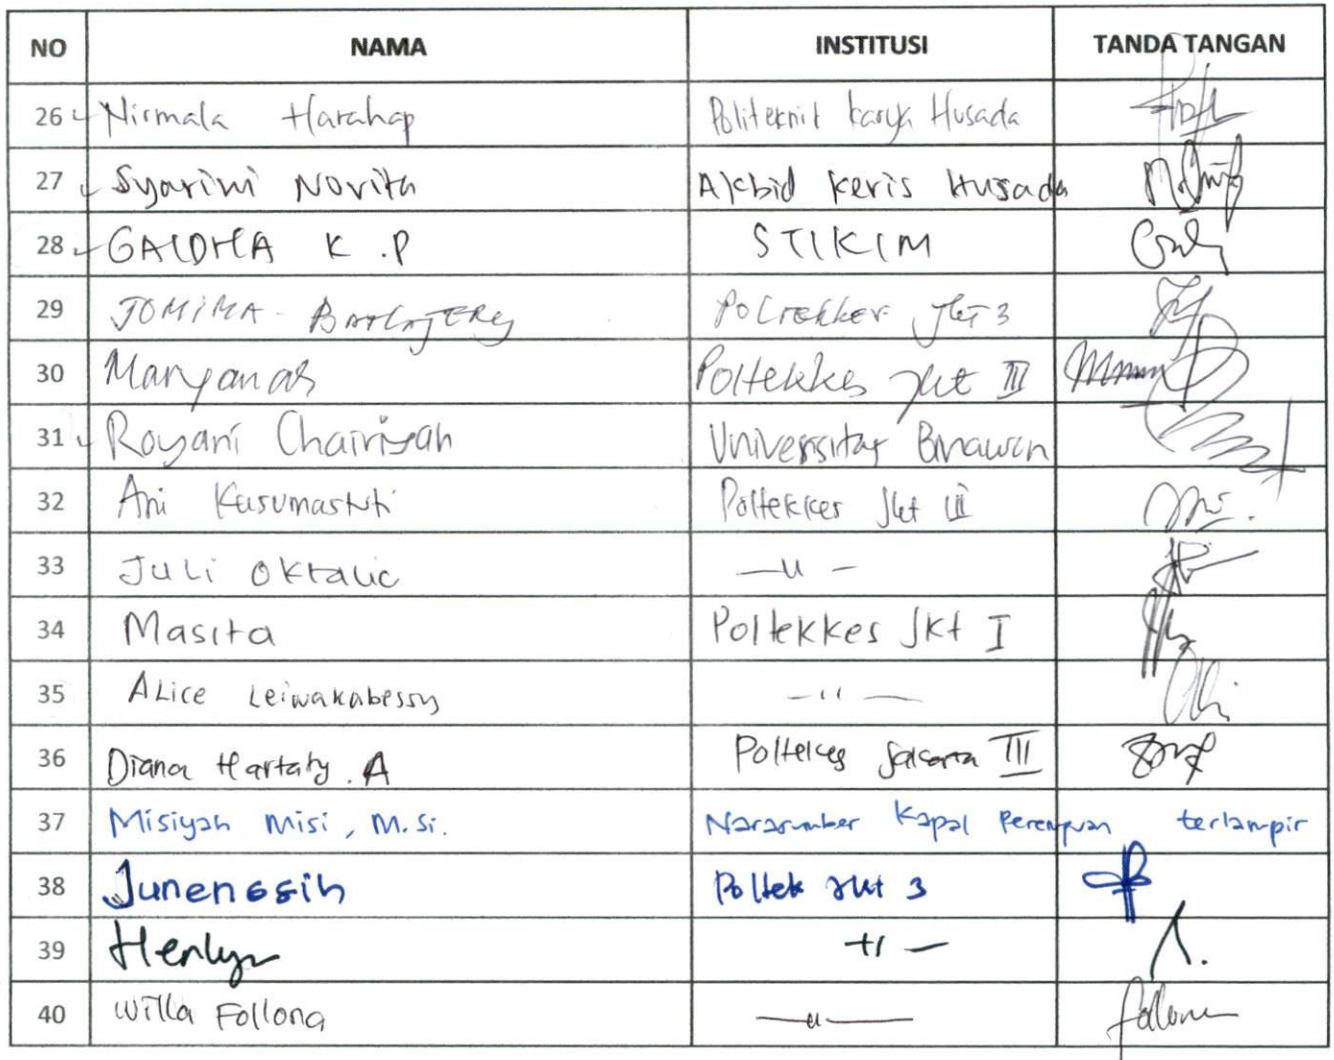 NO NAMA INSTITUSI TANDA TANGAN
26 Nirmala Harahap Politeknik karya Husada
27 Syarini Novita Akbid keris Husada
28 GAIDHA K.P STIKIM
29 JOMIMA Poltekkes Jkt 3
30 Maryanah Poltekkes Jkt III
31 Royani Chairiyah Universitas Binawan
32 Ani Kusumastuti Poltekkes Jkt III
33 Juli Oktalia — u —
34 Masita Poltekkes Jkt I
35 Alice Leiwakabessy — 11 —
36 Diana Hartaty. A Poltekes Jakarta III
37 Misiyah Misi, M.Si. Narasumber Kapal Perempuan terlampir
38 Junengsih Poltek Jkt 3
39 Henlyn
40 Willa Follona — u —